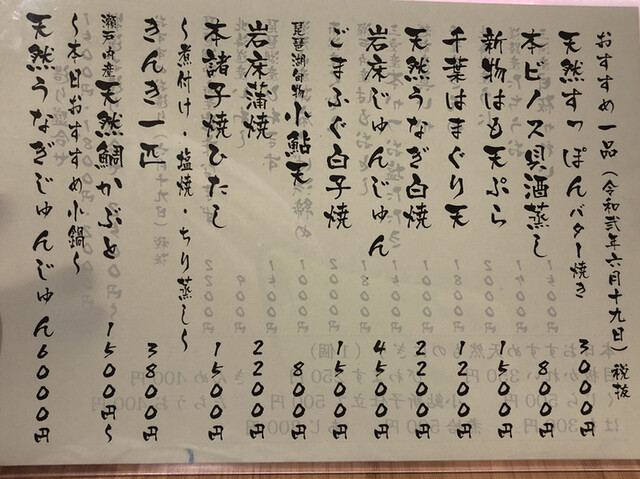 おすすめ一品(令和弐年六月十九日)税抜
天然すっぽんバター焼き 3000円
本ビノス貝酒蒸し 800円
新物はも天ぷら 1500円
千葉はまぐり天 1200円
天然うなぎ白焼 2200円
岩床じゅんじゅん 4500円
ごまふぐ白子焼 1500円
琵琶湖旬物 小鮎天 800円
岩床蒲焼 2200円
本諸子焼ひたし 1500円
きんき一匹 3800円
〜煮付け・塩焼・ちり蒸し〜
瀬戸内産 天然鯛かぶと 1500円〜
〜本日おすすめ小鍋〜
天然うなぎじゅんじゅん 6000円